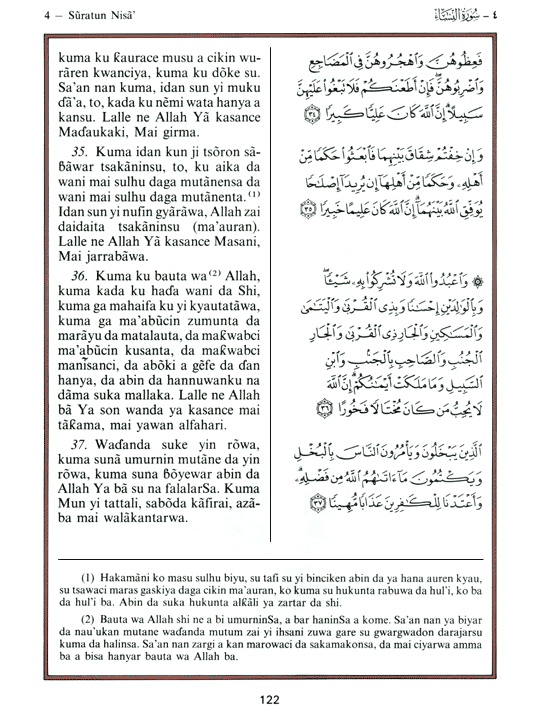 4 — Sūratun Nisā'
٤ - سُورَةُ النِّسَاءِ
kuma ku ƙaurace musu a cikin wu-
rāren kwanciya, kuma ku dōke su.
Sa'an nan kuma, idan sun yi muku
ɗā'a, to, kada ku nēmi wata hanya a
kansu. Lalle ne Allah Yā kasance
Maɗaukaki, Mai girma.
35. Kuma idan kun ji tsōron sā-
ɓāwar tsakāninsu, to, ku aika da
wani mai sulhu daga mutānensa da
wani mai sulhu daga mutānenta.(1)
Idan sun yi nufin gyārāwa, Allah zai
daidaita tsakāninsu (ma'auran).
Lalle ne Allah Yā kasance Masani,
Mai jarrabāwa.
36. Kuma ku bauta wa(2) Allah,
kuma kada ku haɗa wani da Shi,
kuma ga mahaifa ku yi kyautatāwa,
kuma ga ma'abūcin zumunta da
marāyu da matalauta, da maƙwabci
ma'abūcin kusanta, da maƙwabci
manīsanci, da abōki a gēfe da ɗan
hanya, da abin da hannuwanku na
dāma suka mallaka. Lalle ne Allah
bā Ya son wanda ya kasance mai
tāƙama, mai yawan alfahari.
37. Waɗanda suke yin rōwa,
kuma sunā umurnin mutāne da yin
rōwa, kuma suna ɓōyewar abin da
Allah Ya bā su na falalarSa. Kuma
Mun yi tattali, sabōda kāfirai, azā-
ba mai walākantarwa.
فَعِظُوهُنَّ وَاهْجُرُوهُنَّ فِي الْمَضَاجِعِ
وَاضْرِبُوهُنَّ فَإِنْ أَطَعْنَكُمْ فَلَا تَبْغُوا عَلَيْهِنَّ
سَبِيلًا إِنَّ اللَّهَ كَانَ عَلِيًّا كَبِيرًا ٣٤
وَإِنْ خِفْتُمْ شِقَاقَ بَيْنِهِمَا فَابْعَثُوا حَكَمًا مِّنْ
أَهْلِهِ وَحَكَمًا مِّنْ أَهْلِهَا إِن يُرِيدَا إِصْلَاحًا
يُوَفِّقِ اللَّهُ بَيْنَهُمَا إِنَّ اللَّهَ كَانَ عَلِيمًا خَبِيرًا ٣٥
۞ وَاعْبُدُوا اللَّهَ وَلَا تُشْرِكُوا بِهِ شَيْئًا
وَبِالْوَالِدَيْنِ إِحْسَانًا وَبِذِي الْقُرْبَىٰ وَالْيَتَامَىٰ
وَالْمَسَاكِينِ وَالْجَارِ ذِي الْقُرْبَىٰ وَالْجَارِ
الْجُنُبِ وَالصَّاحِبِ بِالْجَنبِ وَابْنِ
السَّبِيلِ وَمَا مَلَكَتْ أَيْمَانُكُمْ إِنَّ اللَّهَ
لَا يُحِبُّ مَن كَانَ مُخْتَالًا فَخُورًا ٣٦
الَّذِينَ يَبْخَلُونَ وَيَأْمُرُونَ النَّاسَ بِالْبُخْلِ
وَيَكْتُمُونَ مَا آتَاهُمُ اللَّهُ مِن فَضْلِهِ
وَأَعْتَدْنَا لِلْكَافِرِينَ عَذَابًا مُّهِينًا ٣٧
(1) Hakamāni ko masu sulhu biyu, su tafi su yi binciken abin da ya hana auren kyau,
su tsawaci maras gaskiya daga cikin ma'auran, ko kuma su hukunta rabuwa da hul'i, ko ba
da hul'i ba. Abin da suka hukunta alƙāli ya zartar da shi.
(2) Bauta wa Allah shi ne a bi umurninSa, a bar haninSa a kome. Sa'an nan ya biyar
da nau'ukan mutane waɗanda mutum zai yi ihsani zuwa gare su gwargwadon darajarsu
kuma da halinsa. Sa'an nan zargi a kan marowaci da sakamakonsa, da mai ciyarwa amma
ba a bisa hanyar bauta wa Allah ba.
122